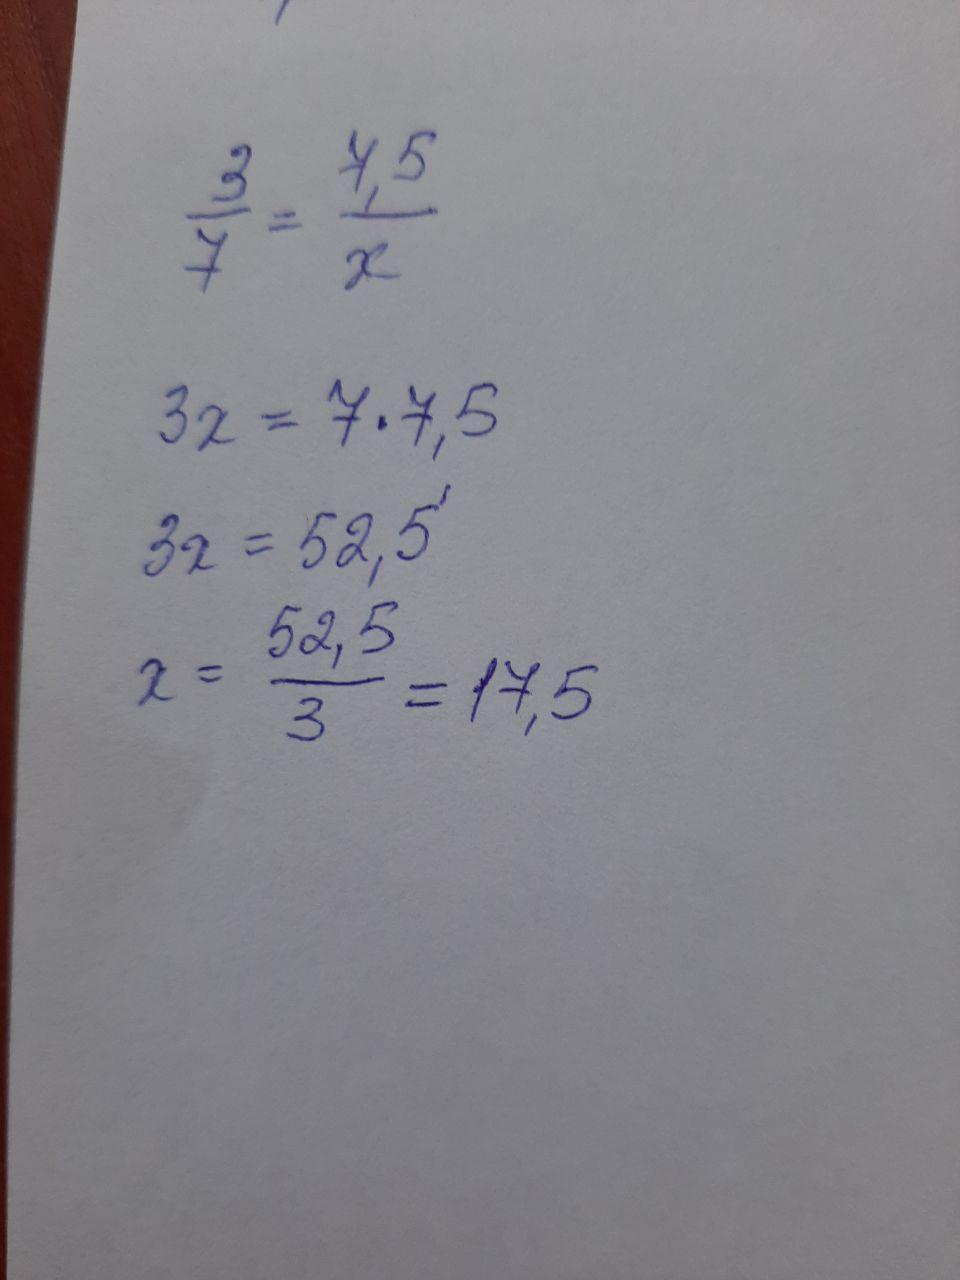 3/7 = 7,5/x
3x = 7·7,5
3x = 52,5
x = 52,5/3 = 17,5